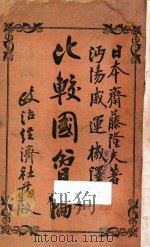 日本齋藤隆夫著
沔陽咸運機譯
比較國會論
政治經濟社藏版